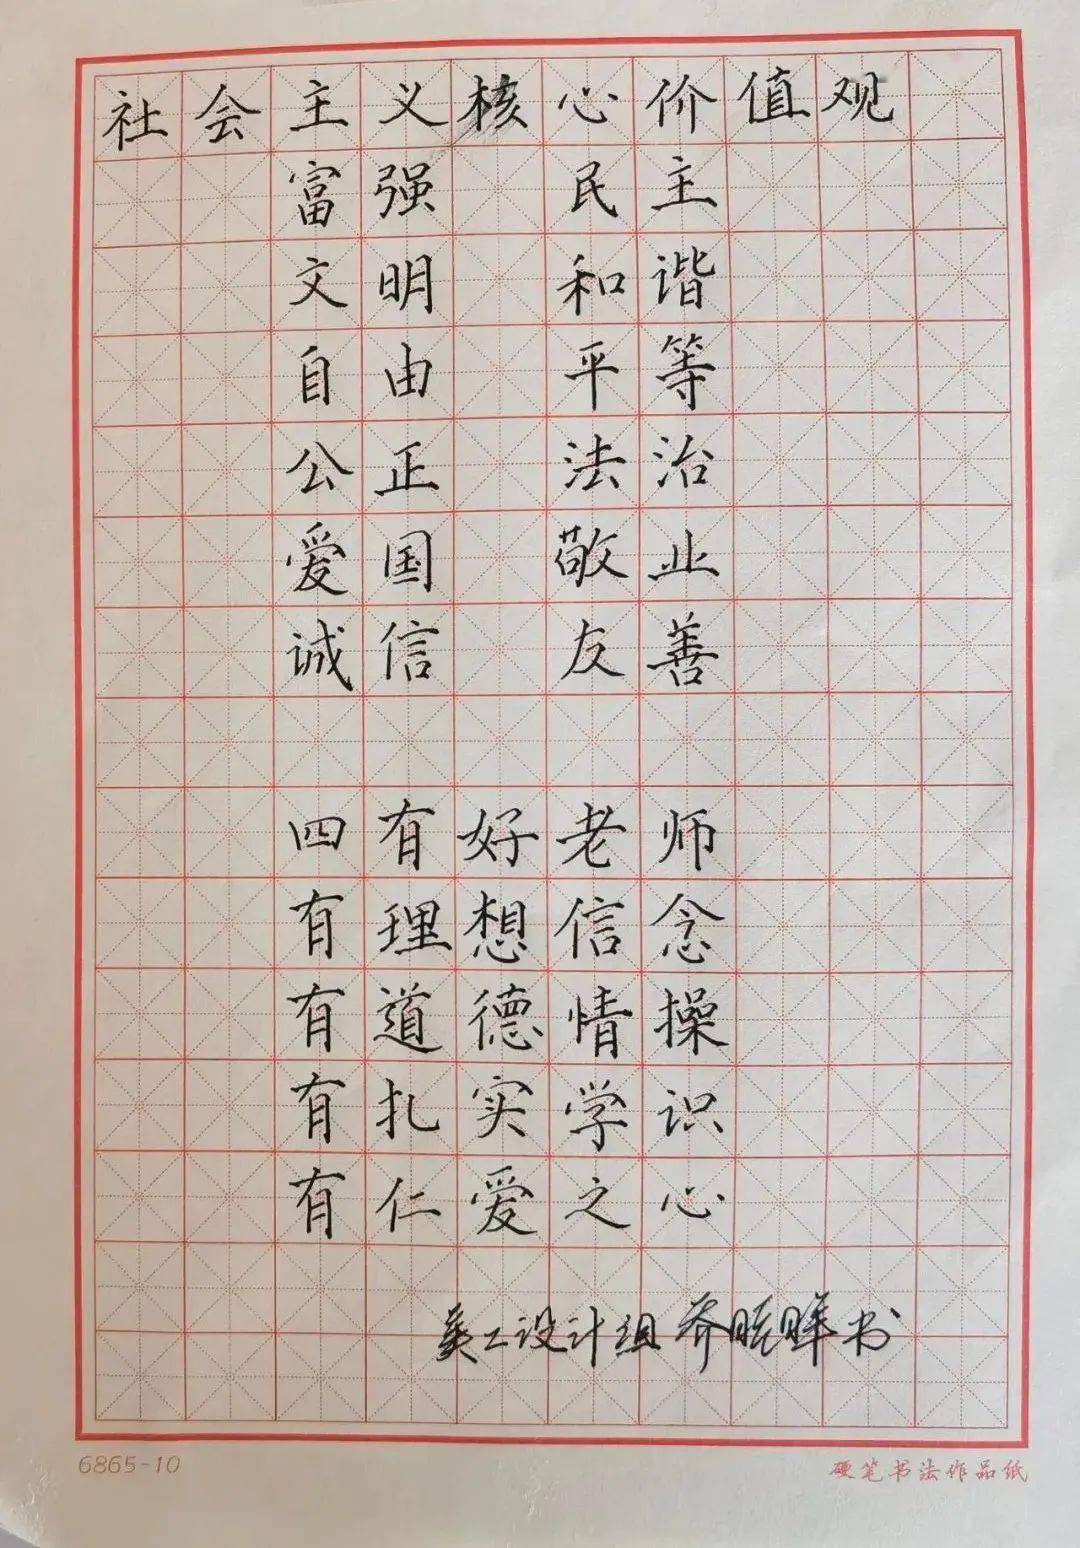 社会主义核心价值观
富强 民主
文明 和谐
自由 平等
公正 法治
爱国 敬业
诚信 友善
四有好老师
有理想信念
有道德情操
有扎实学识
有仁爱之心
美工设计组 乔晓晖书
6865-10 硬笔书法作品纸